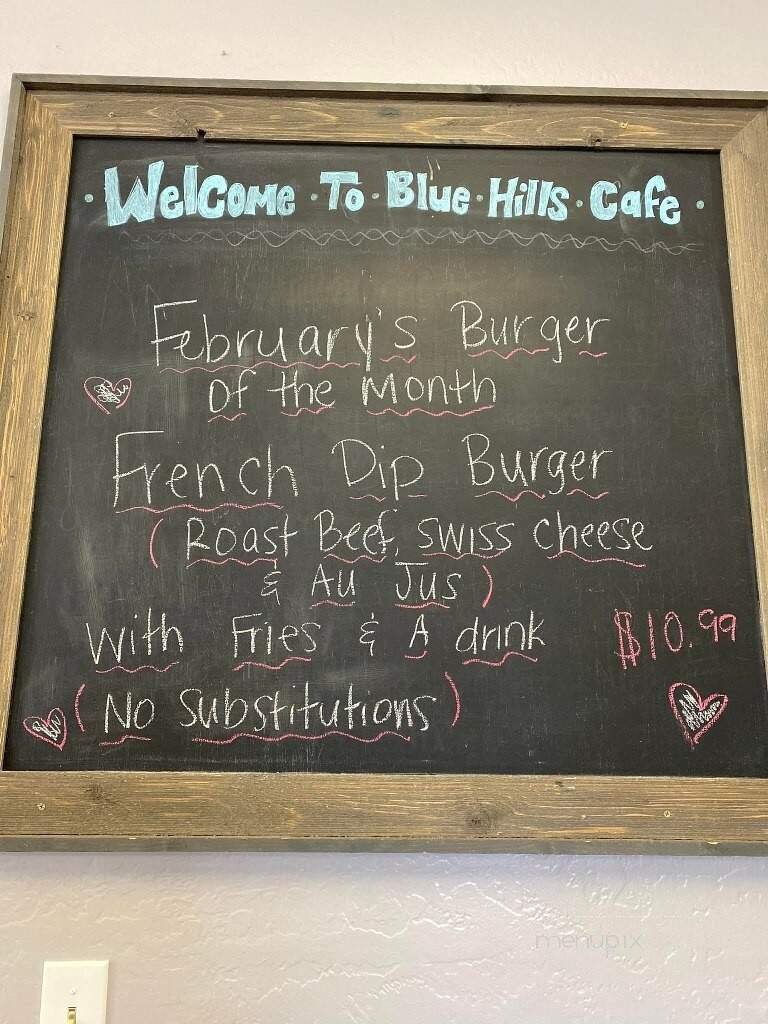 · Welcome · To · Blue · Hills · Cafe ·
February's Burger
of the Month
French Dip Burger
(Roast Beef, swiss cheese
& Au Jus)
with Fries & A drink $10.99
(No Substitutions)
menupix